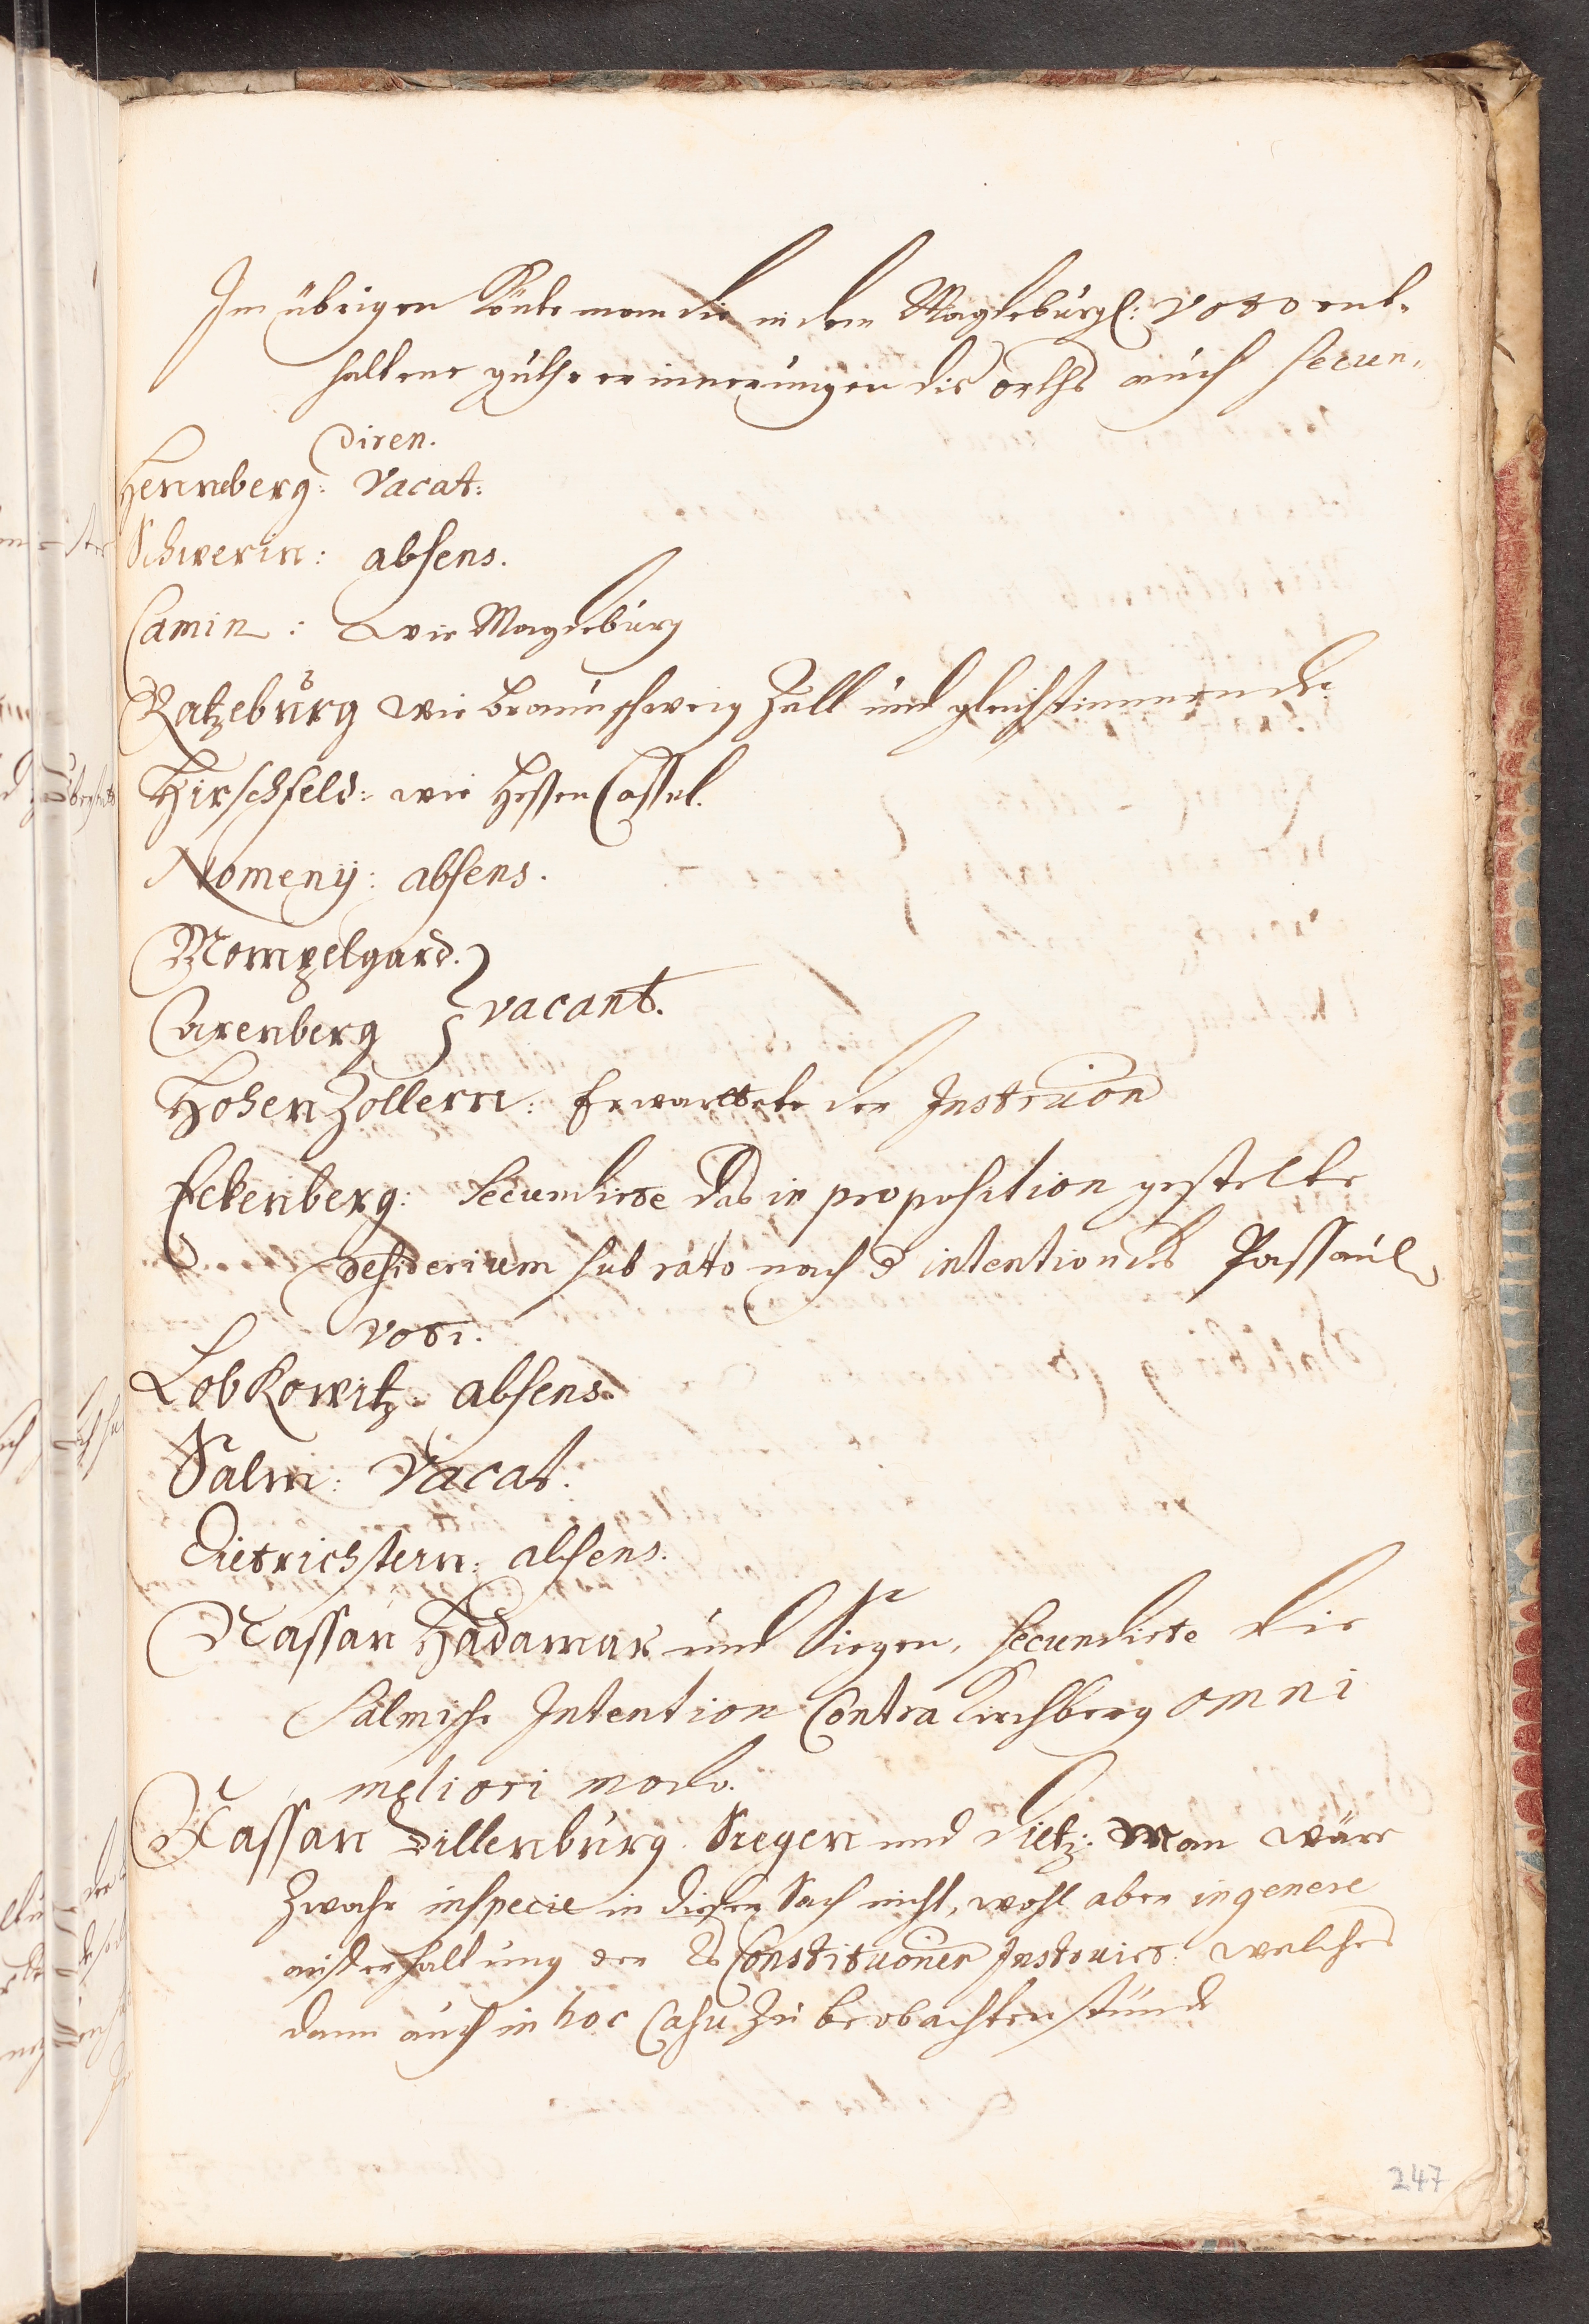 Im übrigen könte man die in dem Magdeburgl: voto ent-
haltene guthe erinnerungen dis orths auch secun-
diren.
Henneberg: Vacat:
Schwerin: absens.
Camin: wie Magdeburg
Ratzeburg wie Braunschweig Zell und gleichstimmende
Hirschfeld: wie Hessen Cassel.
Nomeny: absens.
Mompelgard.
Arenberg } vacant.
HohenZollern: Erwartete der Instruon
Eckenberg: secundirte das in proposition gestelte
desiderium sub rato nach d intention des Passaul
voti.
Lobkowitz: absens.
Salm: Vacat.
Dietrichstein: absens.
Nassau Hadamar und Siegen, secundirte die
Salmische Intention Contra Kirchberg omni
meliori modo.
Nassau Dillenburg Siegen und Dietz: Man wäre
Zwahr in specie in dieser Sach nicht, wohl aber in genere
auf erhaltung der Rs Constituonen Instruirt: welches
dann auch in hoc Casu zu beobachten stünde
247